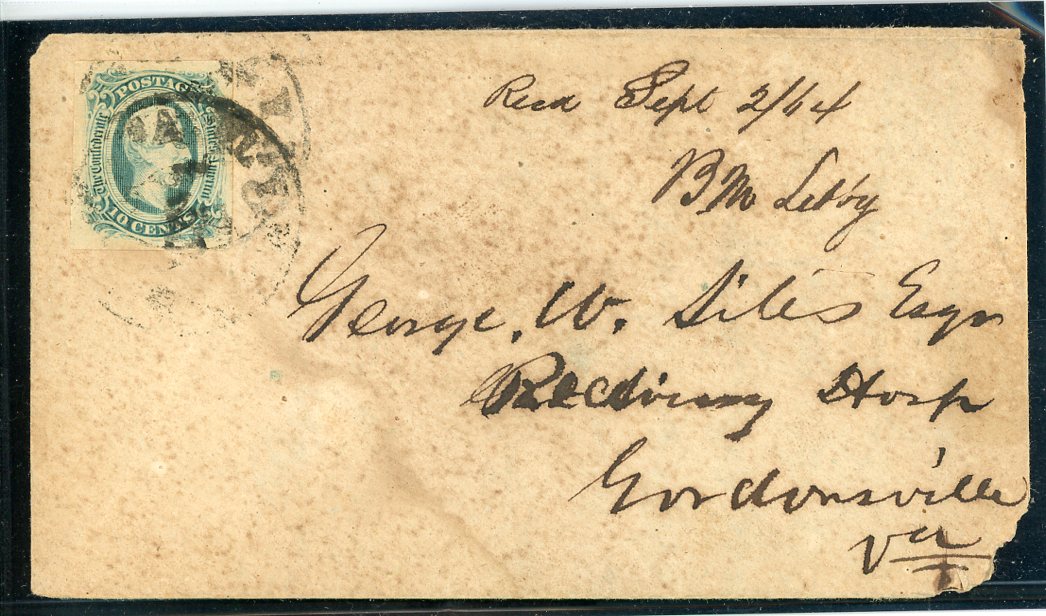 POSTAGE
The Confederate States America
10 CENTS
Recd Sept 2/64
B M
George, W. Siles Esqr
Receiving Hosp
Gordonsville
Va